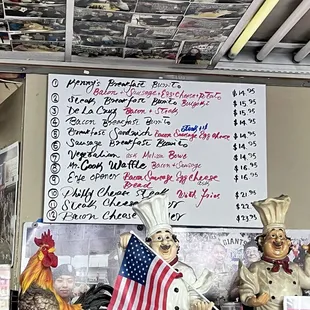 ① Kenny's Breakfast Burrito $14.95
Bacon + Sausage + Egg Cheese + Potato
② Steak Breakfast Burrito $15.95
③ De La Cruz Bacon + Steak $15.95
④ Bacon Breakfast Burrito $14.95
⑤ Breakfast Sandwich Bacon Sausage Egg Cheese $14.95
⑥ Sausage Breakfast Burrito $14.95
⑦ Vegetarian $14.95
⑧ Mr. Cook Waffle Bacon + Sausage $16.95
⑨ Eye opener Bacon Sausage Egg Cheese $16.95
Bread
⑩ Philly Cheese Steak With fries $21.95
Steak Cheese $22.95
⑫ Bacon Cheese $23.95
GIANTS